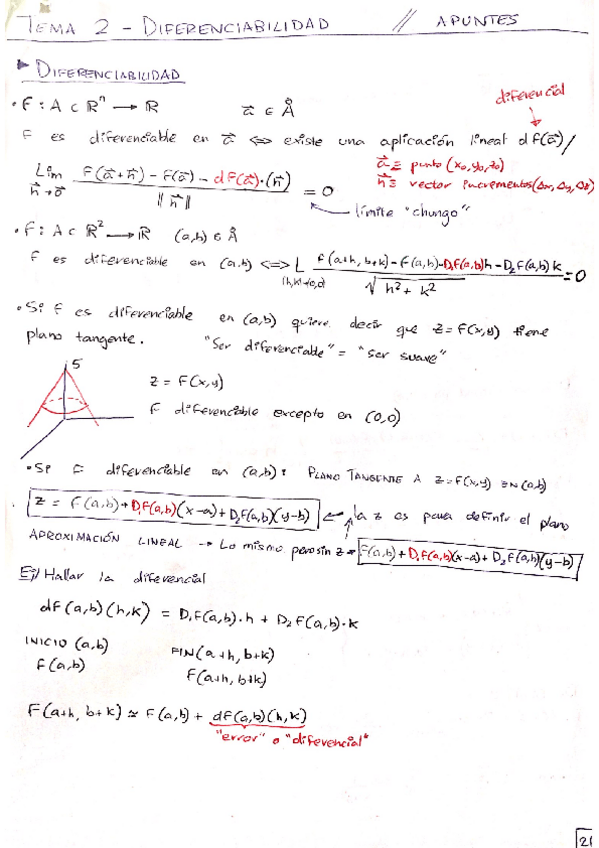 TEMA 2 - DIFERENCIABILIDAD // APUNTES
DIFERENCIABILIDAD
• F : A ⊂ ℝⁿ → ℝ   a⃗ ∈ Å
diferencial
F es diferenciable en a⃗ ⟺ existe una aplicación lineal dF(a⃗) /
Lim h⃗→0⃗ (F(a⃗+h⃗) - F(a⃗) - dF(a⃗)·(h⃗)) / ‖h⃗‖ = 0
a⃗ ≡ punto (x₀,y₀,z₀)
h⃗ ≡ vector incrementos (Δx, Δy, Δz)
límite "chungo"
• F : A ⊂ ℝ² → ℝ   (a,b) ∈ Å
F es diferenciable en (a,b) ⟺ L (h,k)→(0,0) (F(a+h, b+k) - F(a,b) - D₁F(a,b)h - D₂F(a,b)k) / √(h² + k²) = 0
• Si F es diferenciable en (a,b) quiere decir que z = F(x,y) tiene
plano tangente. "Ser diferenciable" = "ser suave"
5
z = F(x,y)
F diferenciable excepto en (0,0)
• Si F diferenciable en (a,b): PLANO TANGENTE A z = F(x,y) EN (a,b)
z = F(a,b) + D₁F(a,b)(x-a) + D₂F(a,b)(y-b) ← la z es para definir el plano
APROXIMACIÓN LINEAL → Lo mismo pero sin z = F(a,b) + D₁F(a,b)(x-a) + D₂F(a,b)(y-b)
Ej/ Hallar la diferencial
dF(a,b)(h,k) = D₁F(a,b)·h + D₂F(a,b)·k
INICIO (a,b)   FIN (a+h, b+k)
F(a,b)   F(a+h, b+k)
F(a+h, b+k) ≃ F(a,b) + dF(a,b)(h,k)
"error" o "diferencial"
21